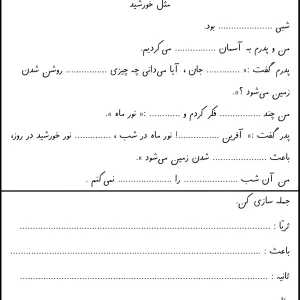 مثل خورشید
شبی ...................... بود.
من و پدرم به آسمان ................ می‌کردیم.
پدرم گفت :« ............. جان ، آیا می‌دانی چه چیزی ................ روشن شدن
زمین می‌شود ؟».
من چند ................ فکر کردم و ............ :« نور ماه ».
پدر گفت :« آفرین ................! نور ماه در شب ، ............... نور خورشید در روز،
باعث ...................... شدن زمین می‌شود ».
من آن شب ...................... را ...................... نمی‌کنم .
جمله سازی کن.
ثریّا : ....................................................................................................
باعث : ....................................................................................................
ثانیه : ....................................................................................................